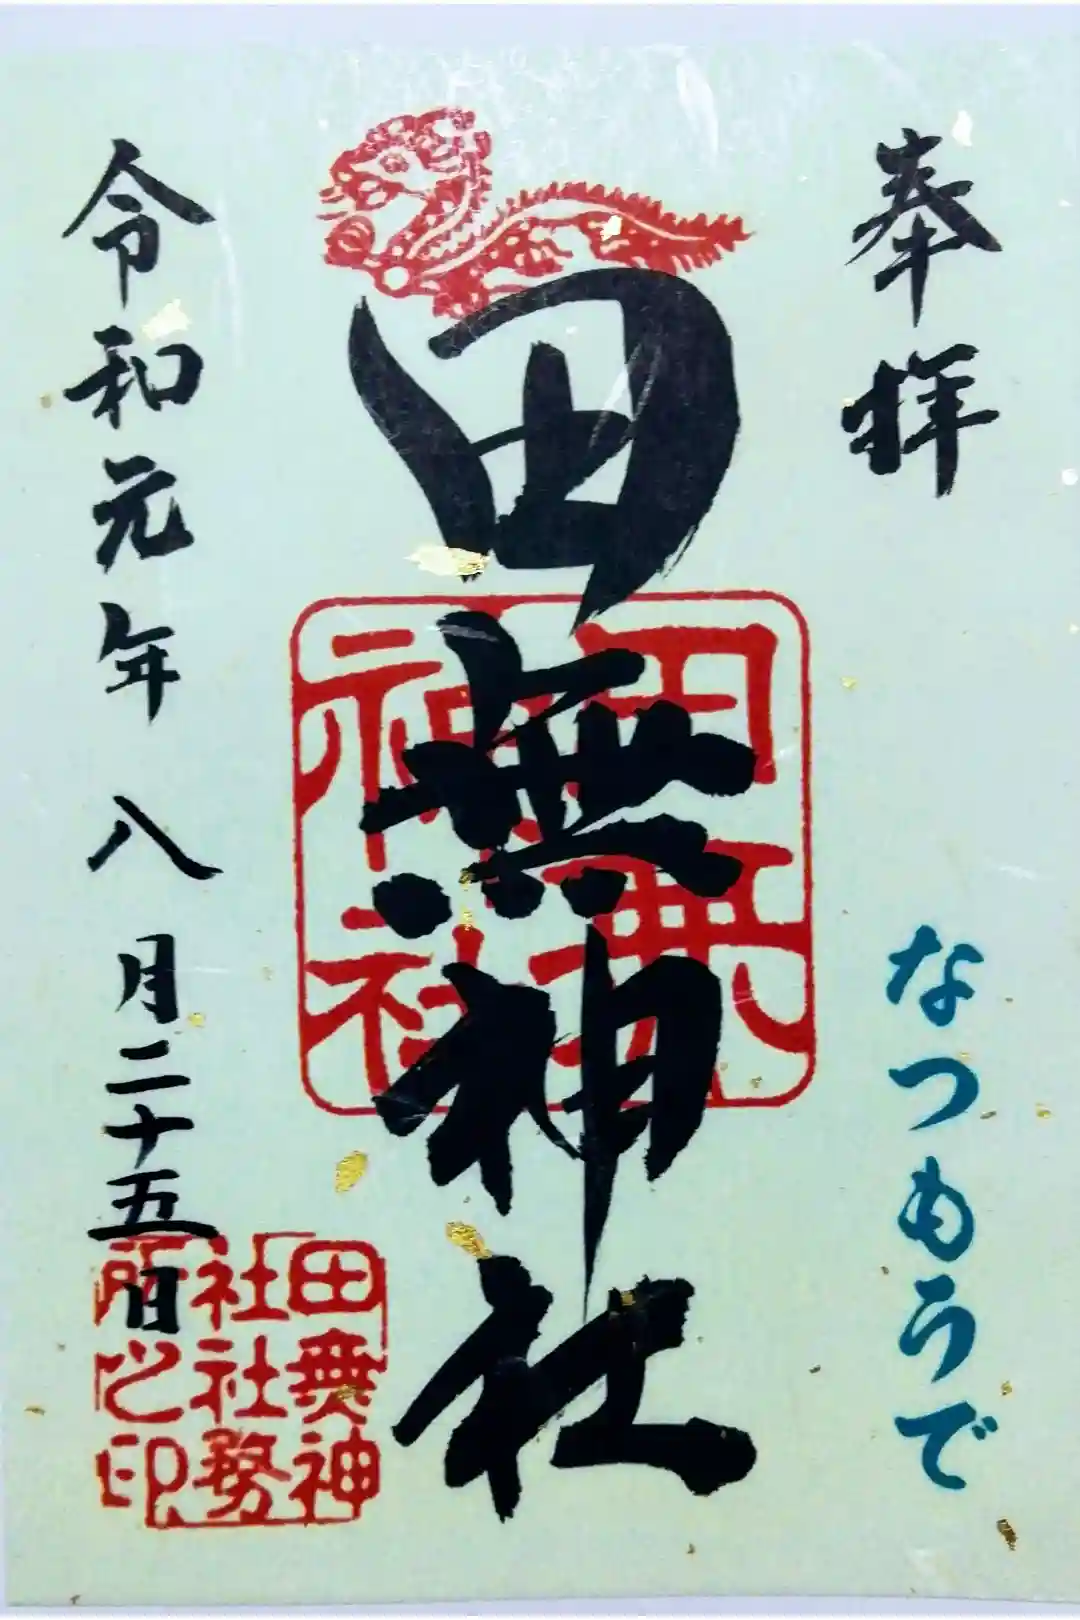 奉拝
なつもうで
田無神社
田無
神社
令和元年八月二十五日
田無神
社社務
所之印